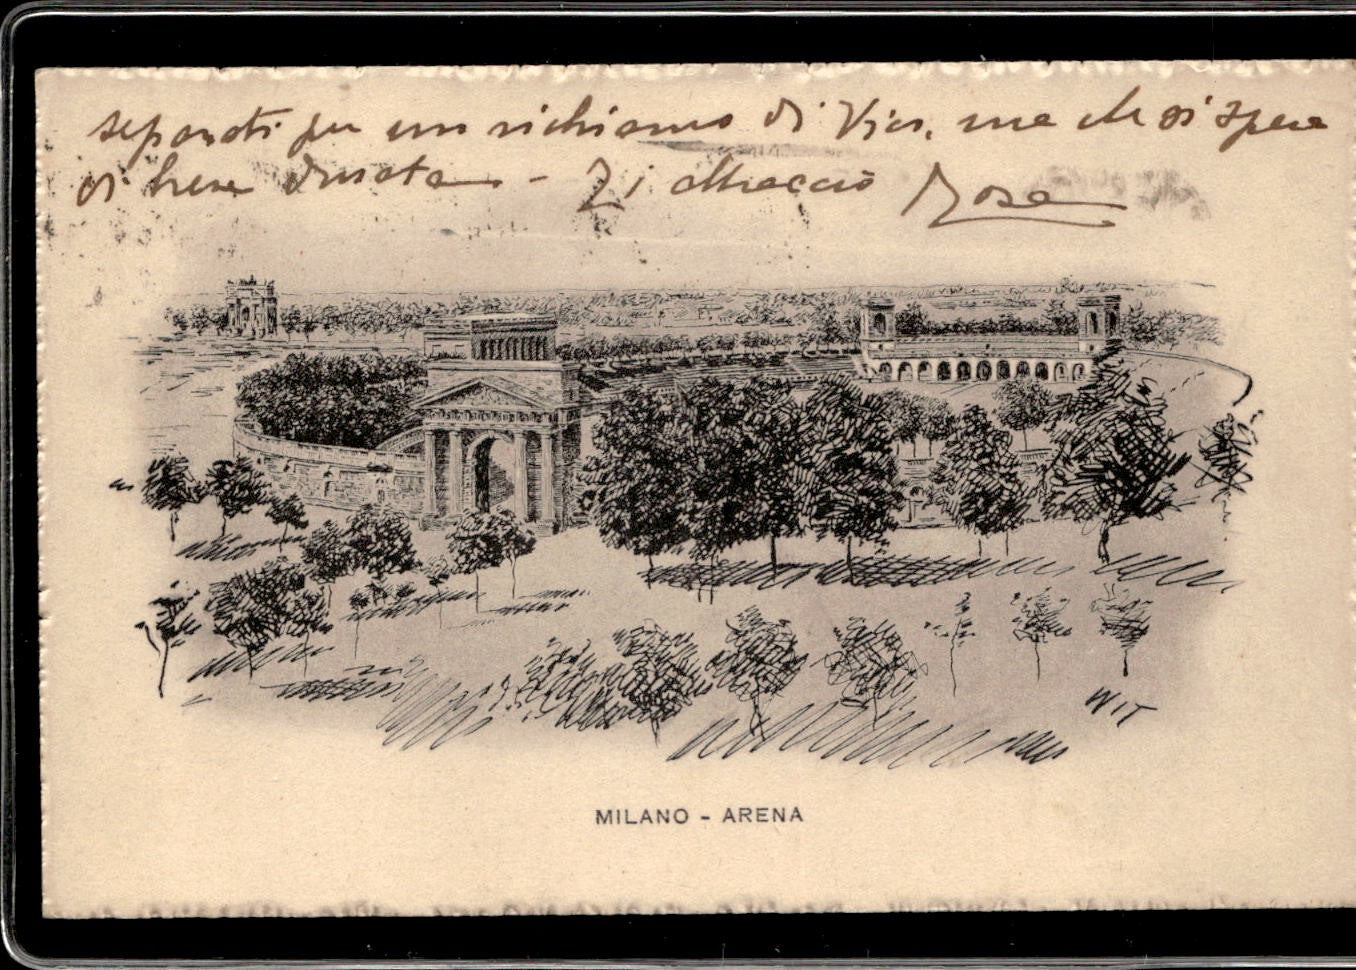 separati per un richiamo di Vico, ma che si spera
di breve durata - Ti abbraccio Rosa
WIT
MILANO - ARENA